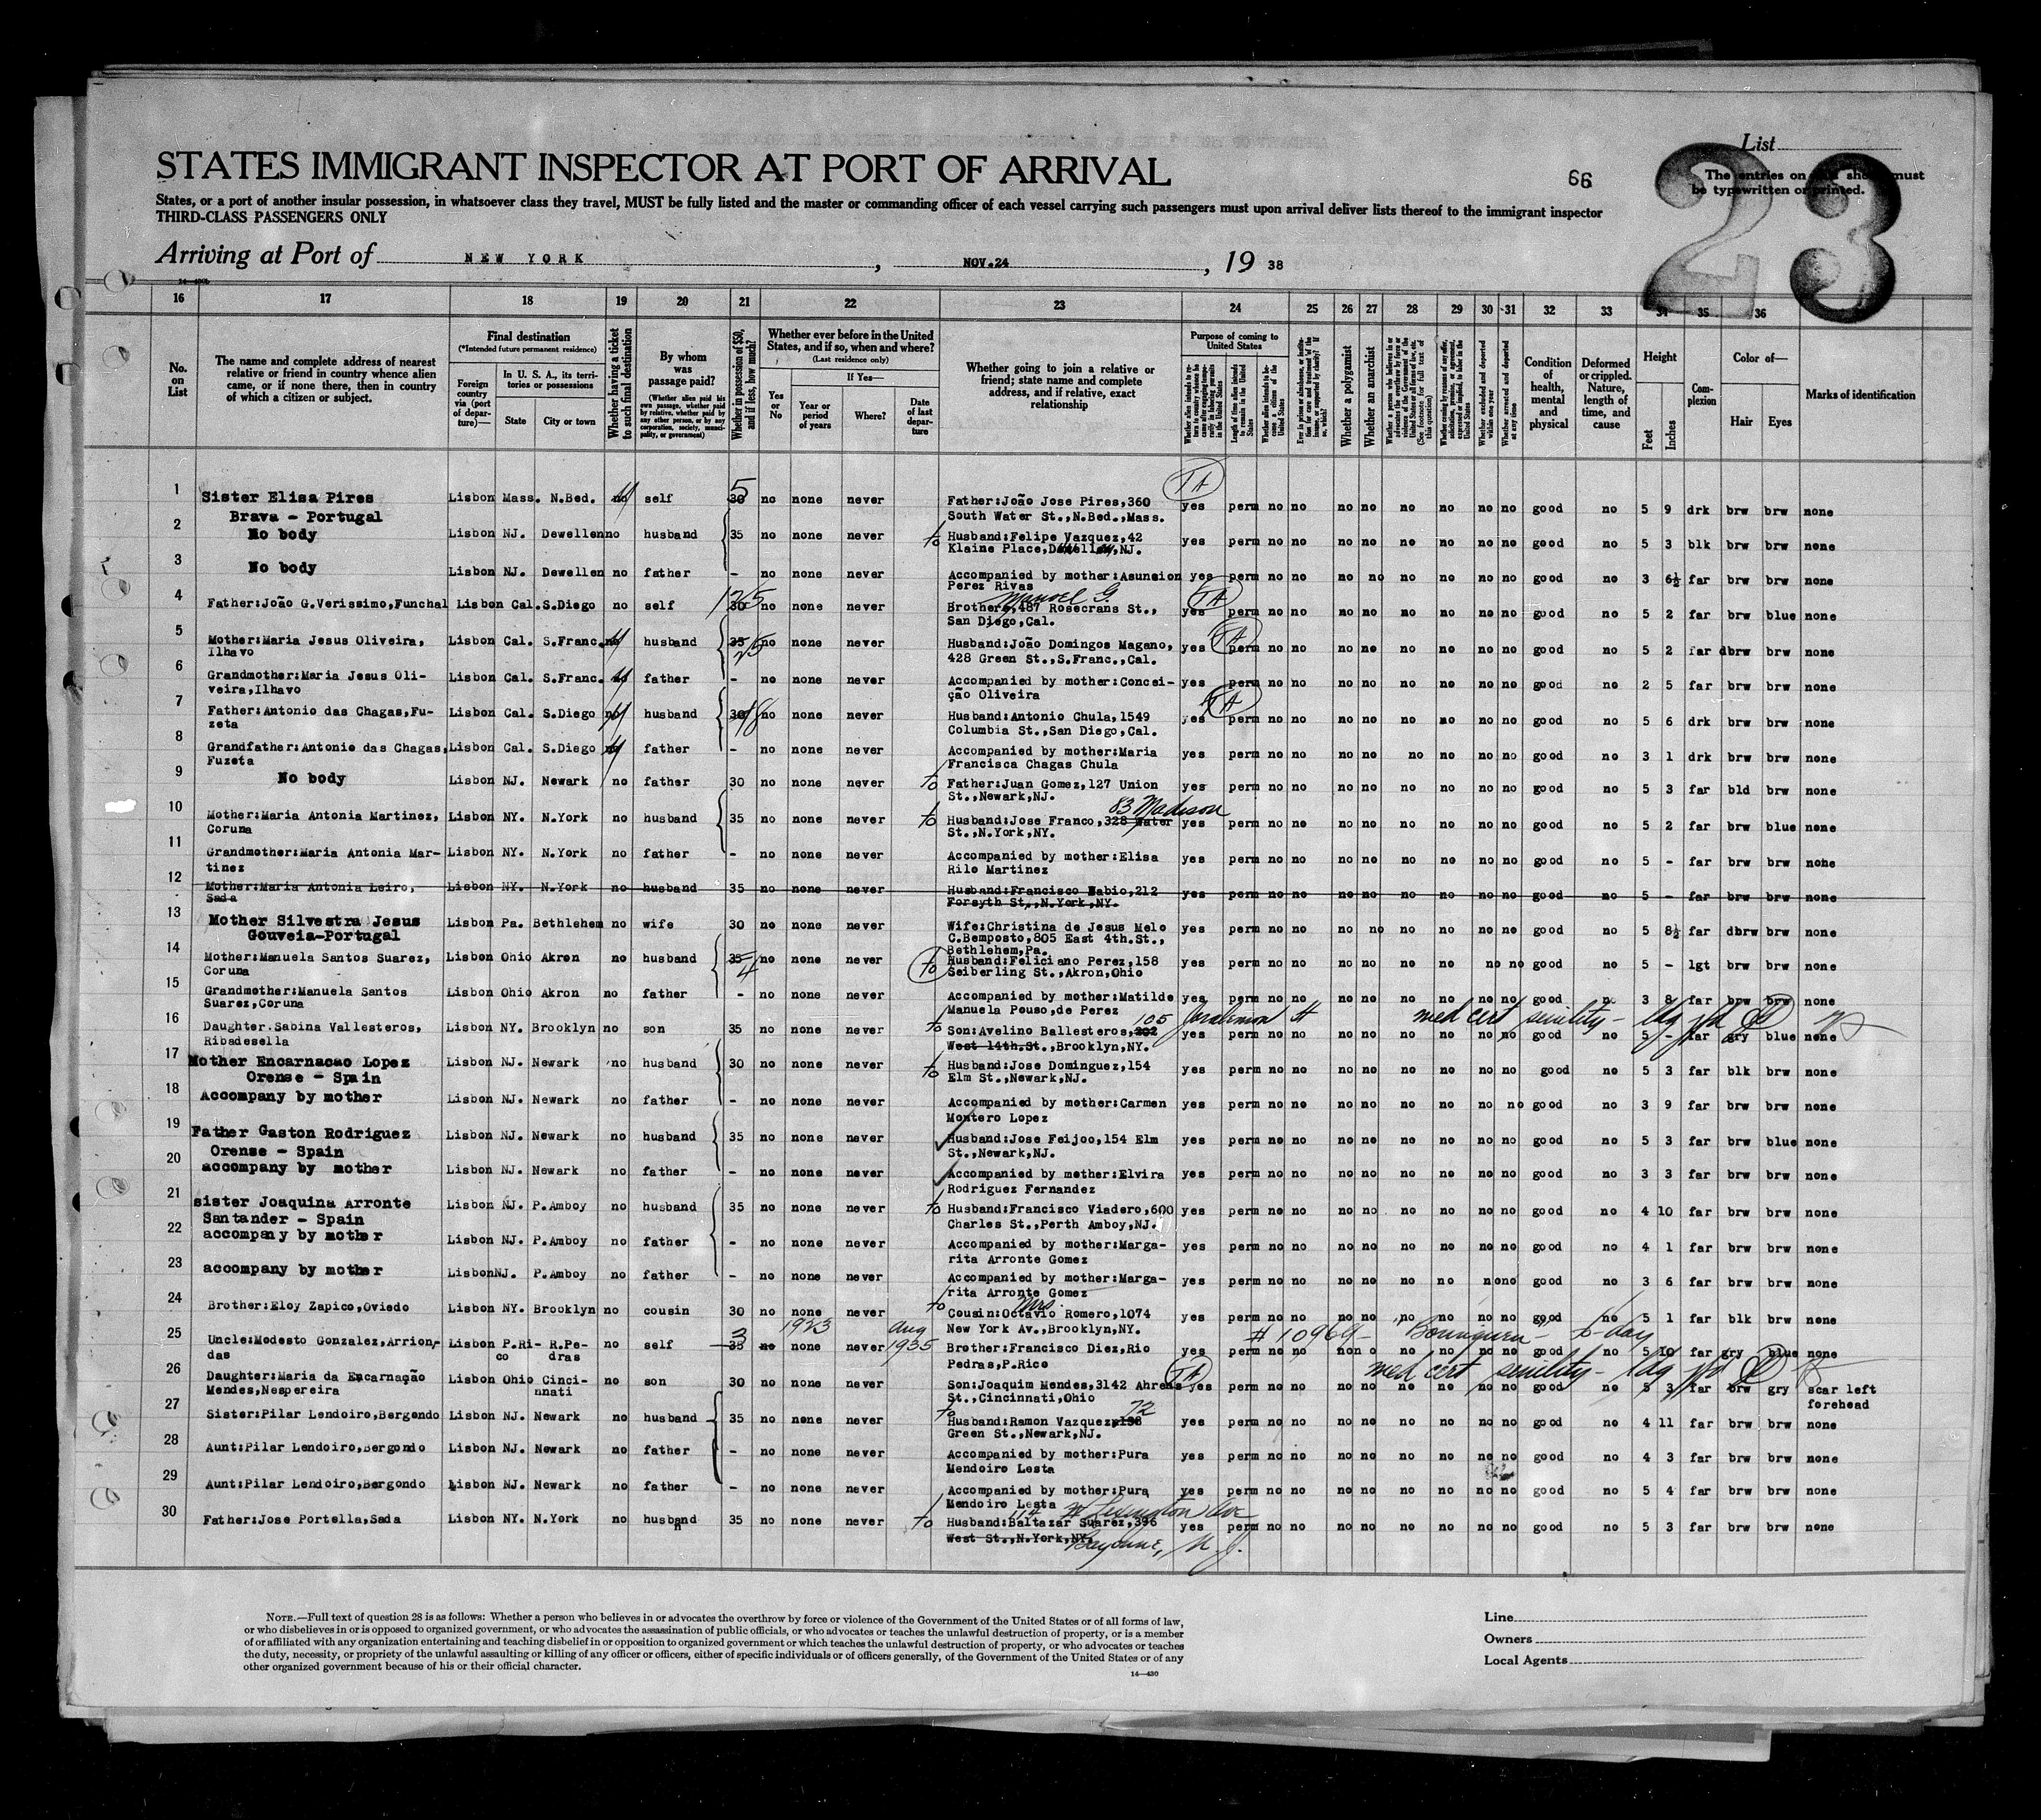 List
STATES IMMIGRANT INSPECTOR AT PORT OF ARRIVAL
66
The entries on this sheet must
be typewritten or printed.
23
States, or a port of another insular possession, in whatsoever class they travel, MUST be fully listed and the master or commanding officer of each vessel carrying such passengers must upon arrival deliver lists thereof to the immigrant inspector
THIRD-CLASS PASSENGERS ONLY
Arriving at Port of NEW YORK, NOV.24, 19 38
16 17 18 19 20 21 22 23 24 25 26 27 28 29 30 31 32 33 34 35 36
No. on List
The name and complete address of nearest relative or friend in country whence alien came, or if none there, then in country of which a citizen or subject.
Final destination
(*Intended future permanent residence)
Foreign country via (port of departure)—
In U. S. A., its territories or possessions
State
City or town
Whether having a ticket to such final destination
By whom was passage paid?
(Whether alien paid his own passage, whether paid by relative, whether paid by any other person, or by any corporation, society, municipality, or government)
Whether in possession of $50, and if less, how much?
Whether ever before in the United States, and if so, when and where?
(Last residence only)
Yes or No
If Yes—
Year or period of years
Where?
Date of last departure
Whether going to join a relative or friend; state name and complete address, and if relative, exact relationship
Purpose of coming to United States
Length of time alien intends to remain in the United States
Whether alien intends to become a citizen of the United States
Whether a polygamist
Whether an anarchist
Condition of health, mental and physical
Deformed or crippled. Nature, length of time, and cause
Height
Feet
Inches
Complexion
Color of—
Hair
Eyes
Marks of identification
1 Sister Elisa Pires Lisbon Mass. N.Bed. no self 30 5 no none never Father:João Jose Pires,360 TA yes perm no no no no no no no no good no 5 9 drk brw brw none
Brava – Portugal South Water St.,N.Bed.,Mass.
2 No body Lisbon NJ. Dewellen no husband 35 no none never to Husband:Felipe Vazquez,42 yes perm no no no no no no no no good no 5 3 blk brw brw none
Klaine Place, NJ.
3 No body Lisbon NJ. Dewellen no father - no none never Accompanied by mother:Asuncion yes perm no no no no no no no no good no 3 6½ far brw brw none
Perez Rivas
4 Father:João G.Verissimo,Funchal Lisbon Cal. S.Diego no self 30 125 no none never Manuel G. Brother,487 Rosecrans St., TA yes perm no no no no no no no no good no 5 2 far brw blue none
San Diego,Cal.
5 Mother:Maria Jesus Oliveira, Lisbon Cal. S.Franc. no husband 35 25 no none never Husband:João Domingos Magano, yes TA perm no no no no no no no no good no 5 2 far dbrw brw none
Ilhavo 428 Green St.,S.Franc.,Cal.
6 Grandmother:Maria Jesus Oli- Lisbon Cal. S.Franc. father - no none never Accompanied by mother:Concei- yes perm no no no no no no no no good no 2 5 far brw brw none
veira,Ilhavo ção Oliveira
7 Father:Antonio das Chagas,Fu- Lisbon Cal. S.Diego no husband 30 18 no none never Husband:Antonio Chula,1549 yes TA perm no no no no no no no no good no 5 6 drk brw brw none
zeta Columbia St.,San Diego,Cal.
8 Grandfather:Antonio das Chagas, Lisbon Cal. S.Diego no father - no none never Accompanied by mother:Maria yes perm no no no no no no no no good no 3 1 drk brw brw none
Fuzeta Francisca Chagas Chula
9 No body Lisbon NJ. Newark no father 30 no none never to Father:Juan Gomez,127 Union yes perm no no no no no no no no good no 5 3 far bld brw none
St.,Newark,NJ.
83 Madison
10 Mother:Maria Antonia Martinez, Lisbon NY. N.York no husband 35 no none never to Husband:Jose Franco,328 Water yes perm no no no no no no no no good no 5 2 far brw blue none
Coruna St.,N.York,NY.
11 Grandmother:Maria Antonia Mar- Lisbon NY. N.York no father - no none never Accompanied by mother:Elisa yes perm no no no no no no no no good no 5 - far brw brw none
tinez Rilo Martinez
12 Mother:Maria Antonia Leiro, Lisbon NY. N.York no husband 35 no none never Husband:Francisco Babio,212 yes perm no no no no no no no no good no 5 - far brw brw none
Sada Forsyth St.,N.York,NY.
13 Mother Silvestra Jesus Lisbon Pa. Bethlehem no wife 30 no none never Wife:Christina de Jesus Melo yes perm no no no no no no no no good no 5 8½ far dbrw brw none
Gouveia-Portugal C.Bemposto,805 East 4th.St.,
Bethlehem,Pa.
14 Mother:Manuela Santos Suarez, Lisbon Ohio Akron no husband 35 4 no none never to Husband:Feliciano Perez,158 yes perm no no no no no no no no good no 5 - lgt brw brw none
Coruna Seiberling St.,Akron,Ohio
15 Grandmother:Manuela Santos Lisbon Ohio Akron no father - no none never Accompanied by mother:Matilde yes perm no no no no no no no no good no 3 8 far brw brw none
Suarez,Coruna Manuela Pouso,de Perez
105 Joralemon St med cert senility-
16 Daughter.Sabina Vallesteros, Lisbon NY. Brooklyn no son 35 no none never to Son:Avelino Ballesteros,202 yes perm no no no no no no no no good no 5 - far gry blue none
Ribadesella West 14th.St.,Brooklyn,NY.
17 Mother Encarnacao Lopez Lisbon NJ. Newark no husband 30 no none never to Husband:Jose Dominguez,154 yes perm no no no no no no no no good no 5 3 far blk brw none
Orense – Spain Elm St.,Newark,NJ.
18 Accompany by mother Lisbon NJ. Newark no father - no none never Accompanied by mother:Carmen yes perm no no no no no no no no good no 3 9 far brw brw none
Montero Lopez
19 Father Gaston Rodriguez Lisbon NJ. Newark no husband 35 no none never Husband:Jose Feijoo,154 Elm yes perm no no no no no no no no good no 5 3 far brw blue none
Orense – Spain St.,Newark,NJ.
20 accompany by mother Lisbon NJ. Newark no father - no none never Accompanied by mother:Elvira yes perm no no no no no no no no good no 3 3 far brw brw none
Rodriguez Fernandez
21 sister Joaquina Arronte Lisbon NJ. P.Amboy no husband 35 no none never to Husband:Francisco Viadero,600 yes perm no no no no no no no no good no 4 10 far brw brw none
Santander – Spain Charles St.,Perth Amboy,NJ.
22 accompany by mother Lisbon NJ. P.Amboy no father - no none never Accompanied by mother:Marga- yes perm no no no no no no no no good no 4 1 far brw brw none
rita Arronte Gomez
23 accompany by mother Lisbon NJ. P.Amboy no father - no none never Accompanied by mother:Marga- yes perm no no no no no no no no good no 3 6 far brw brw none
rita Arronte Gomez
24 Brother:Eloy Zapico,Oviedo Lisbon NY. Brooklyn no cousin 30 no none never to Cousin:Mrs. Octavio Romero,1074 yes perm no no no no no no no no good no 5 1 far blk brw none
New York Av.,Brooklyn,NY.
1923 Aug 1935 # 10969- "Borinquen"- to-day
25 Uncle:Modesto Gonzalez,Arrion- Lisbon P.Ri- R.Pe- no self 35 3 no none never Brother:Francisco Diez,Rio perm no no no no no no no no good no 5 10 far gry blue none
das co dras Pedras,P.Rico
med cert senility-
26 Daughter:Maria da Encarnação Lisbon Ohio Cinci- no son 30 no none never Son:Joaquim Mendes,3142 Ahrens TA yes perm no no no no no no no no good no 5 3 far brw gry scar left
Mendes,Nespereira nnati St.,Cincinnati,Ohio forehead
27 Sister:Pilar Lendoiro,Bergondo Lisbon NJ. Newark no husband 35 no none never to Husband:Ramon Vazquez,198 72 yes perm no no no no no no no no good no 4 11 far brw brw none
Green St.,Newark,NJ.
28 Aunt:Pilar Lendoiro,Bergondo Lisbon NJ. Newark no father - no none never Accompanied by mother:Pura yes perm no no no no no no no no good no 4 3 far brw brw none
Mendoiro Lesta
29 Aunt:Pilar Lendoiro,Bergondo Lisbon NJ. Newark no father - no none never Accompanied by mother:Pura yes perm no no no no no no no no good no 5 4 far brw brw none
Mendoiro Lesta
114 W Lexington Ave
30 Father:Jose Portella,Sada Lisbon NY. N.York no husband 35 no none never to Husband:Baltazar Suarez,396 yes perm no no no no no no no no good no 5 3 far brw brw none
West St.,N.York,NY.
Bayonne, N.J.
NOTE.—Full text of question 28 is as follows: Whether a person who believes in or advocates the overthrow by force or violence of the Government of the United States or of all forms of law,
or who disbelieves in or is opposed to organized government, or who advocates the assassination of public officials, or who advocates or teaches the unlawful destruction of property, or is a member
of or affiliated with any organization entertaining and teaching disbelief in or opposition to organized government or which teaches the unlawful destruction of property, or who advocates or teaches
the duty, necessity, or propriety of the unlawful assaulting or killing of any officer or officers, either of specific individuals or of officers generally, of the Government of the United States or of any
other organized government because of his or their official character.
14—430
Line
Owners
Local Agents